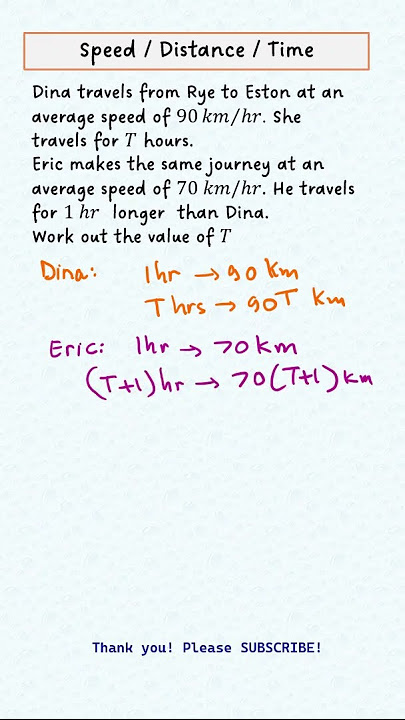 Speed / Distance / Time
Dina travels from Rye to Eston at an
average speed of 90 km/hr. She
travels for T hours.
Eric makes the same journey at an
average speed of 70 km/hr. He travels
for 1 hr longer than Dina.
Work out the value of T
Dina: 1hr → 90 km
T hrs → 90T km
Eric: 1hr → 70km
(T+1)hr → 70(T+1)km
Thank you! Please SUBSCRIBE!